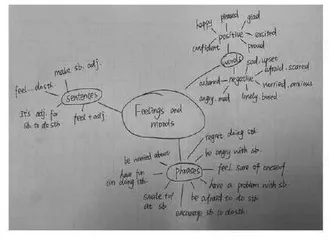 Feelings and
moods
words
positive
happy
pleased
glad
excited
proud
confident
negative
sad. upset
afraid. scared
worried. anxious
lonely. bored
angry. mad
ashamed
sentences
make sb. adj.
feel... do sth
It's adj. for
sb to do sth
feel + adj
phrases
regret doing sth
be angry with sb.
feel sure of oneself
have a problem with sb.
be afraid to do sth
encourage sb to do sth
smile to/
at sb
have fun
in doing sth
be worried about